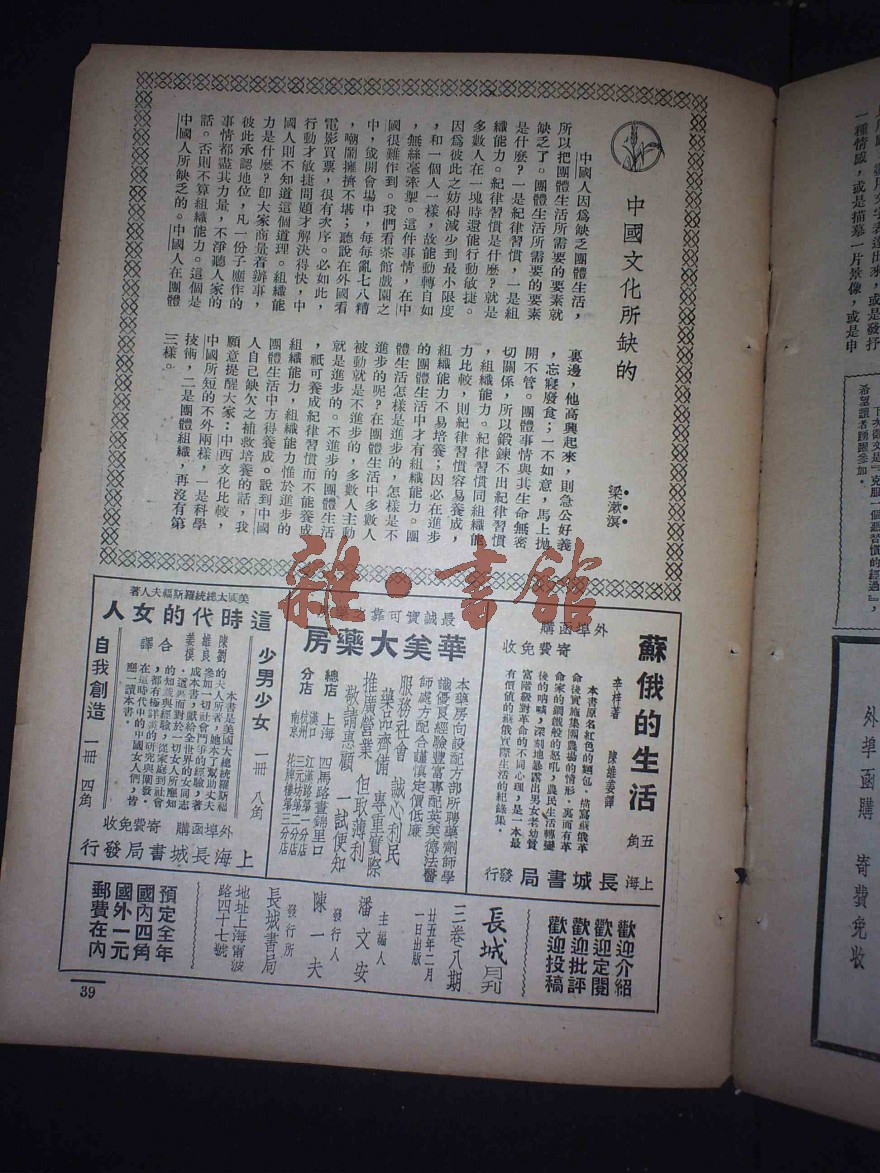 中國文化所缺的
梁漱溟
中國人因爲缺乏團體生活，
所以把團體生活所需要的要素就
缺乏了。團體生活所需要的要素
是什麼？一是紀律習慣，一是組
織能力。紀律習慣是什麼？就是
多數人在一塊時還能行動敏捷。
因爲彼此之妨碍減少到最小限度
，和一個人一樣，故能動轉自如
，無絲毫牽掣。這件事情，在中
國很難作到。我們看茶館戲園之
中，或開會場中，每每亂七八糟
，嘲鬧擁擠不堪；聽說在外國看
電影買票，很有次序。必如此，
行動才敏捷問題才解決得快，中
國人則不知道這個道理。組織能
力是什麼？卽大家商量着辦事，
彼此承認地位，凡一份子應作的
事情都盡其力量，不淨聽人家的
話。否則不算組織能力。這個是
中國人所缺乏的。中國人在團體
裏邊，他高興起來，則急公好義
，忘寢廢食；一不如意，馬上拋
開不管。團體事情與其生命無密
切關係，所以鍛鍊不出紀律習慣
，組織能力。紀律習慣同組織能
力比較，則紀律習慣容易養成，
組織能力不易培養；因必在進步
的團體生活中才有組織能力。團
體生活怎樣是進步的，怎樣是不
進步的呢？在團體生活中多數人
被動就是不進步的，多數人主動
就是進步的。不進步的團體生活
，祇可養成紀律習慣而不能養成
組織能力，組織能力惟於進步的
團體生活中方得養成。說到中國
人自己缺欠之補救培養的話，我
願意提醒大家：中西文化比較，
中國所短的不外兩樣，一是科學
技術，二是團體組織，再沒有第
三樣。
雜·書館
蘇俄的生活
五角
辛梓著
陳維姜譯
本書原名紅色的麵包，描寫蘇俄革
命後實施集團農場的情形，裏面有革
命家的鋼鐵般的怒吼，農民生活轉變
後的吶喊，深刻地暴露出男女老幼貧
富階級對革命的不同心理，是一本最
有價値的蘇俄實際生活的紀錄集。
外埠函購
寄費免收
上海長城書局發行
最誠實可靠
華美大藥房
本藥房向設配方部所聘藥劑師學
識優良經驗豐富專配英美德法醫
師處方配合謹愼定價低廉
服務社會　誠心利民
藥品齊備　專重實際
推廣營業　但取薄利
敬請惠顧　一試便知
總店　上海　四馬路畫錦里口
分店　漢口　江漢路第一分店
杭州　三元坊第二分店
南京　花牌樓第三分店
美國大總統羅斯福夫人著
這時代的女人
少男少女　一冊　八角
本書是美國大總統羅斯福
的夫人所著，她本了幫助丈夫
參加一切社會鬥爭的經驗，著
成本書，獻給全世界的女同志
。這裏面對於一切女人所應知
的知識與經驗，從家庭到社會
，都有極詳美的研究與闡發。
在這時代中的中國女人們，皆
應一讀本書。
陳維姜
劉良模
合譯
自我創造　一冊　四角
外埠函購　寄費免收
上海長城書局發行
歡迎介紹
歡迎定閱
歡迎批評
歡迎投稿
長城月刊
三卷八期
廿五年二月
一日出版
主編人
潘文安
發行人
陳一夫
發行所
長城書局
地址上海甯波
路四十七號
預定全年
國內四角
國外一元
郵費在內
39
一種情感，或是描摹一片景像，或是申
希望讀者踴躍參加。
外埠函購　寄費免收